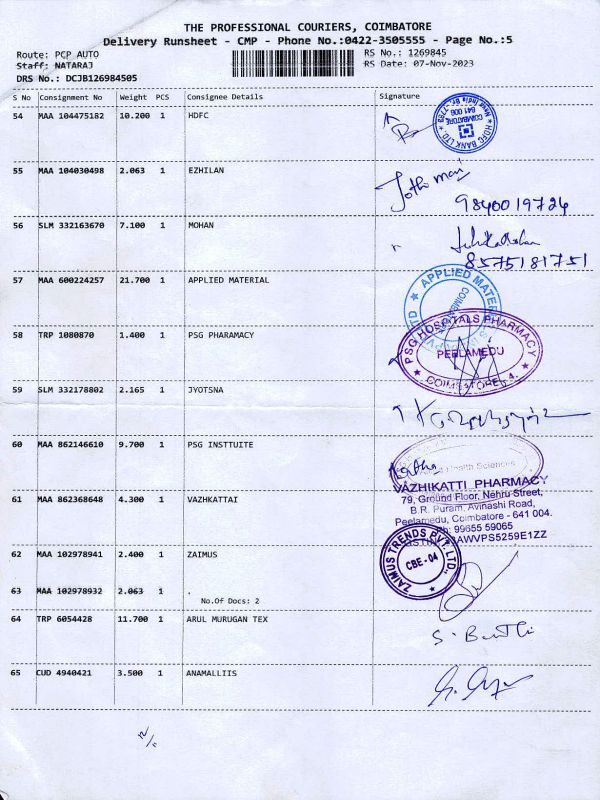 THE PROFESSIONAL COURIERS, COIMBATORE
Delivery Runsheet - CMP - Phone No.:0422-3505555 - Page No.:5
Route: PCP AUTO
Staff: NATARAJ
DRS No.: DCJB126984505
RS No.: 1269845
RS Date: 07-Nov-2023
S No Consignment No Weight PCS Consignee Details Signature
54 MAA 104475182 10.200 1 HDFC
HDFC BANK LTD.
COIMBATORE
641 006
55 MAA 104030498 2.063 1 EZHILAN
Jothi mani
9840019724
56 SLM 332163670 7.100 1 MOHAN
8575181751
57 MAA 600224257 21.700 1 APPLIED MATERIAL
★ APPLIED MATER
58 TRP 1080870 1.400 1 PSG PHARAMACY
PSG HOSPITALS PHARMACY
PEELAMEDU
★ COIMBATORE-4. ★
59 SLM 332178802 2.165 1 JYOTSNA
60 MAA 862146610 9.700 1 PSG INSTTUITE
Health Sciences
61 MAA 862368648 4.300 1 VAZHKATTAI
VAZHIKATTI PHARMACY
79, Ground Floor, Nehru Street,
B.R. Puram, Avinashi Road,
Peelamedu, Coimbatore - 641 004.
Ph: 99655 59065
AWVPS5259E1ZZ
62 MAA 102978941 2.400 1 ZAIMUS
ZAIMUS TRENDS PVT. LTD.,
CBE-04
★
63 MAA 102978932 2.063 1 .
No.Of Docs: 2
64 TRP 6054428 11.700 1 ARUL MURUGAN TEX
65 CUD 4940421 3.500 1 ANAMALLIIS